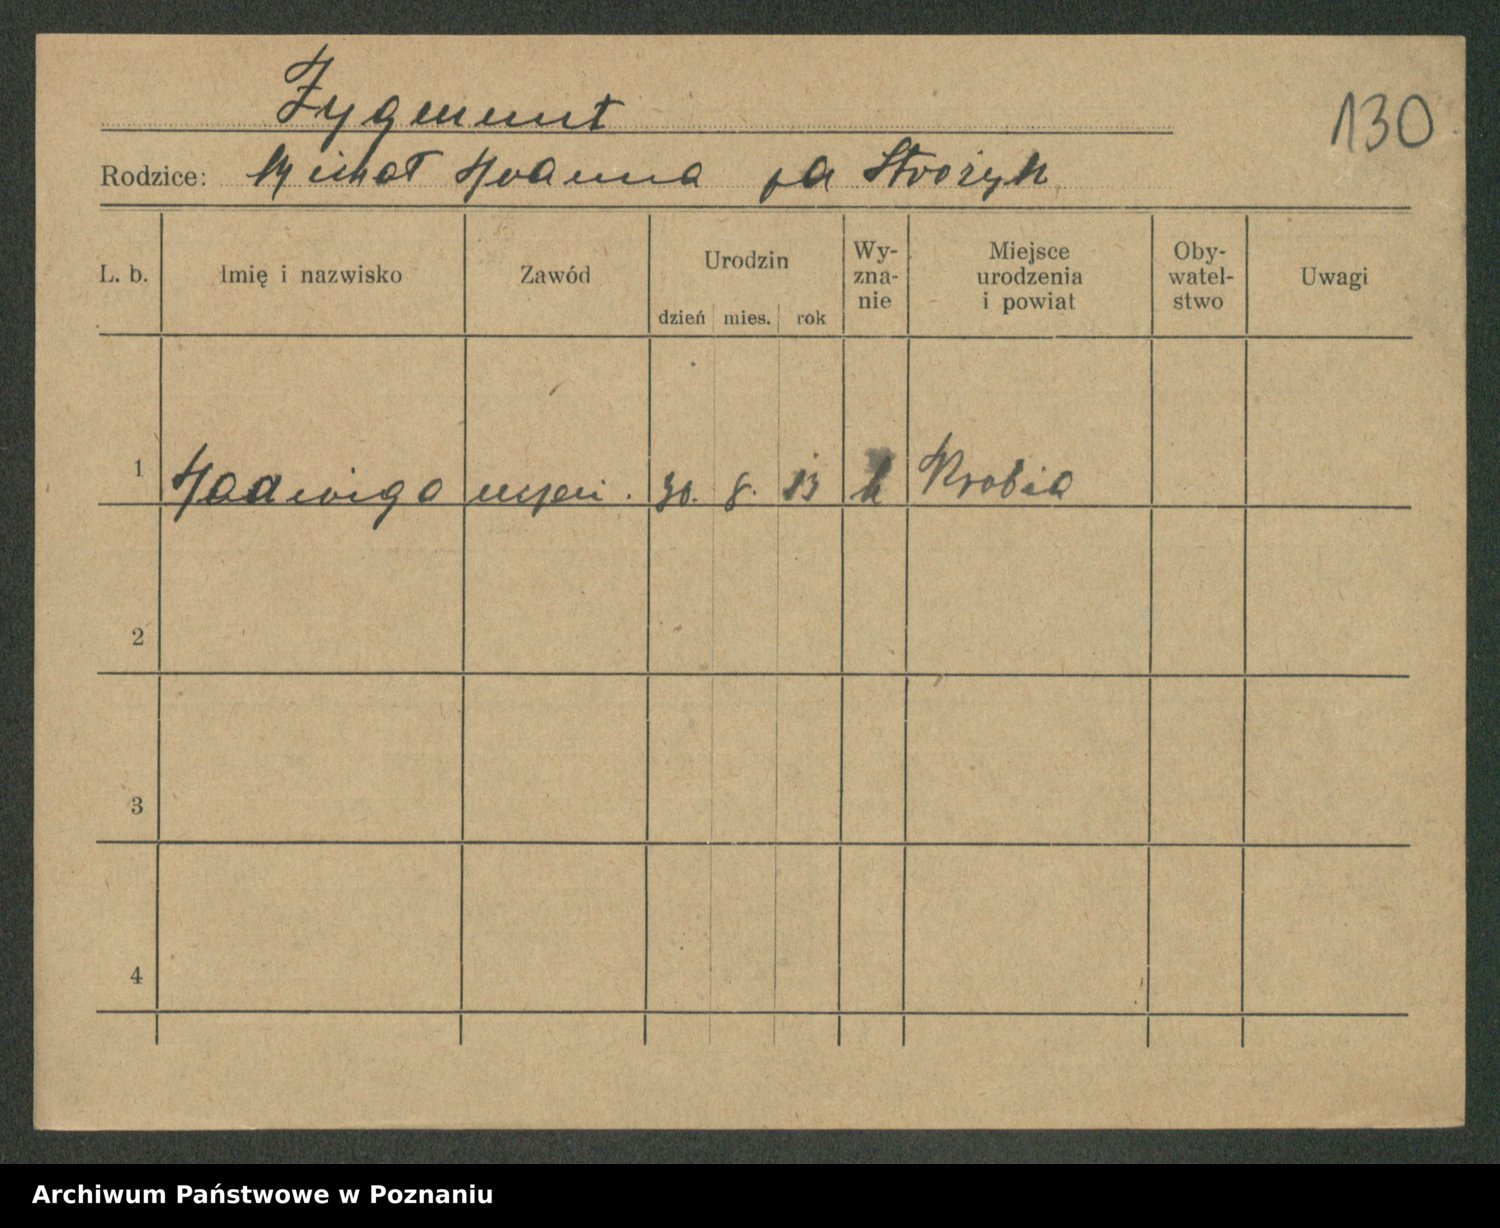 Zygmunt
130
Rodzice: Michał Joanna Stróżyk
L. b. Imię i nazwisko Zawód Urodzin dzień mies. rok Wy-zna-nie Miejsce urodzenia i powiat Oby-watel-stwo Uwagi
1 Jadwiga 30. 8. 13 k Krobia
2
3
4
Archiwum Państwowe w Poznaniu